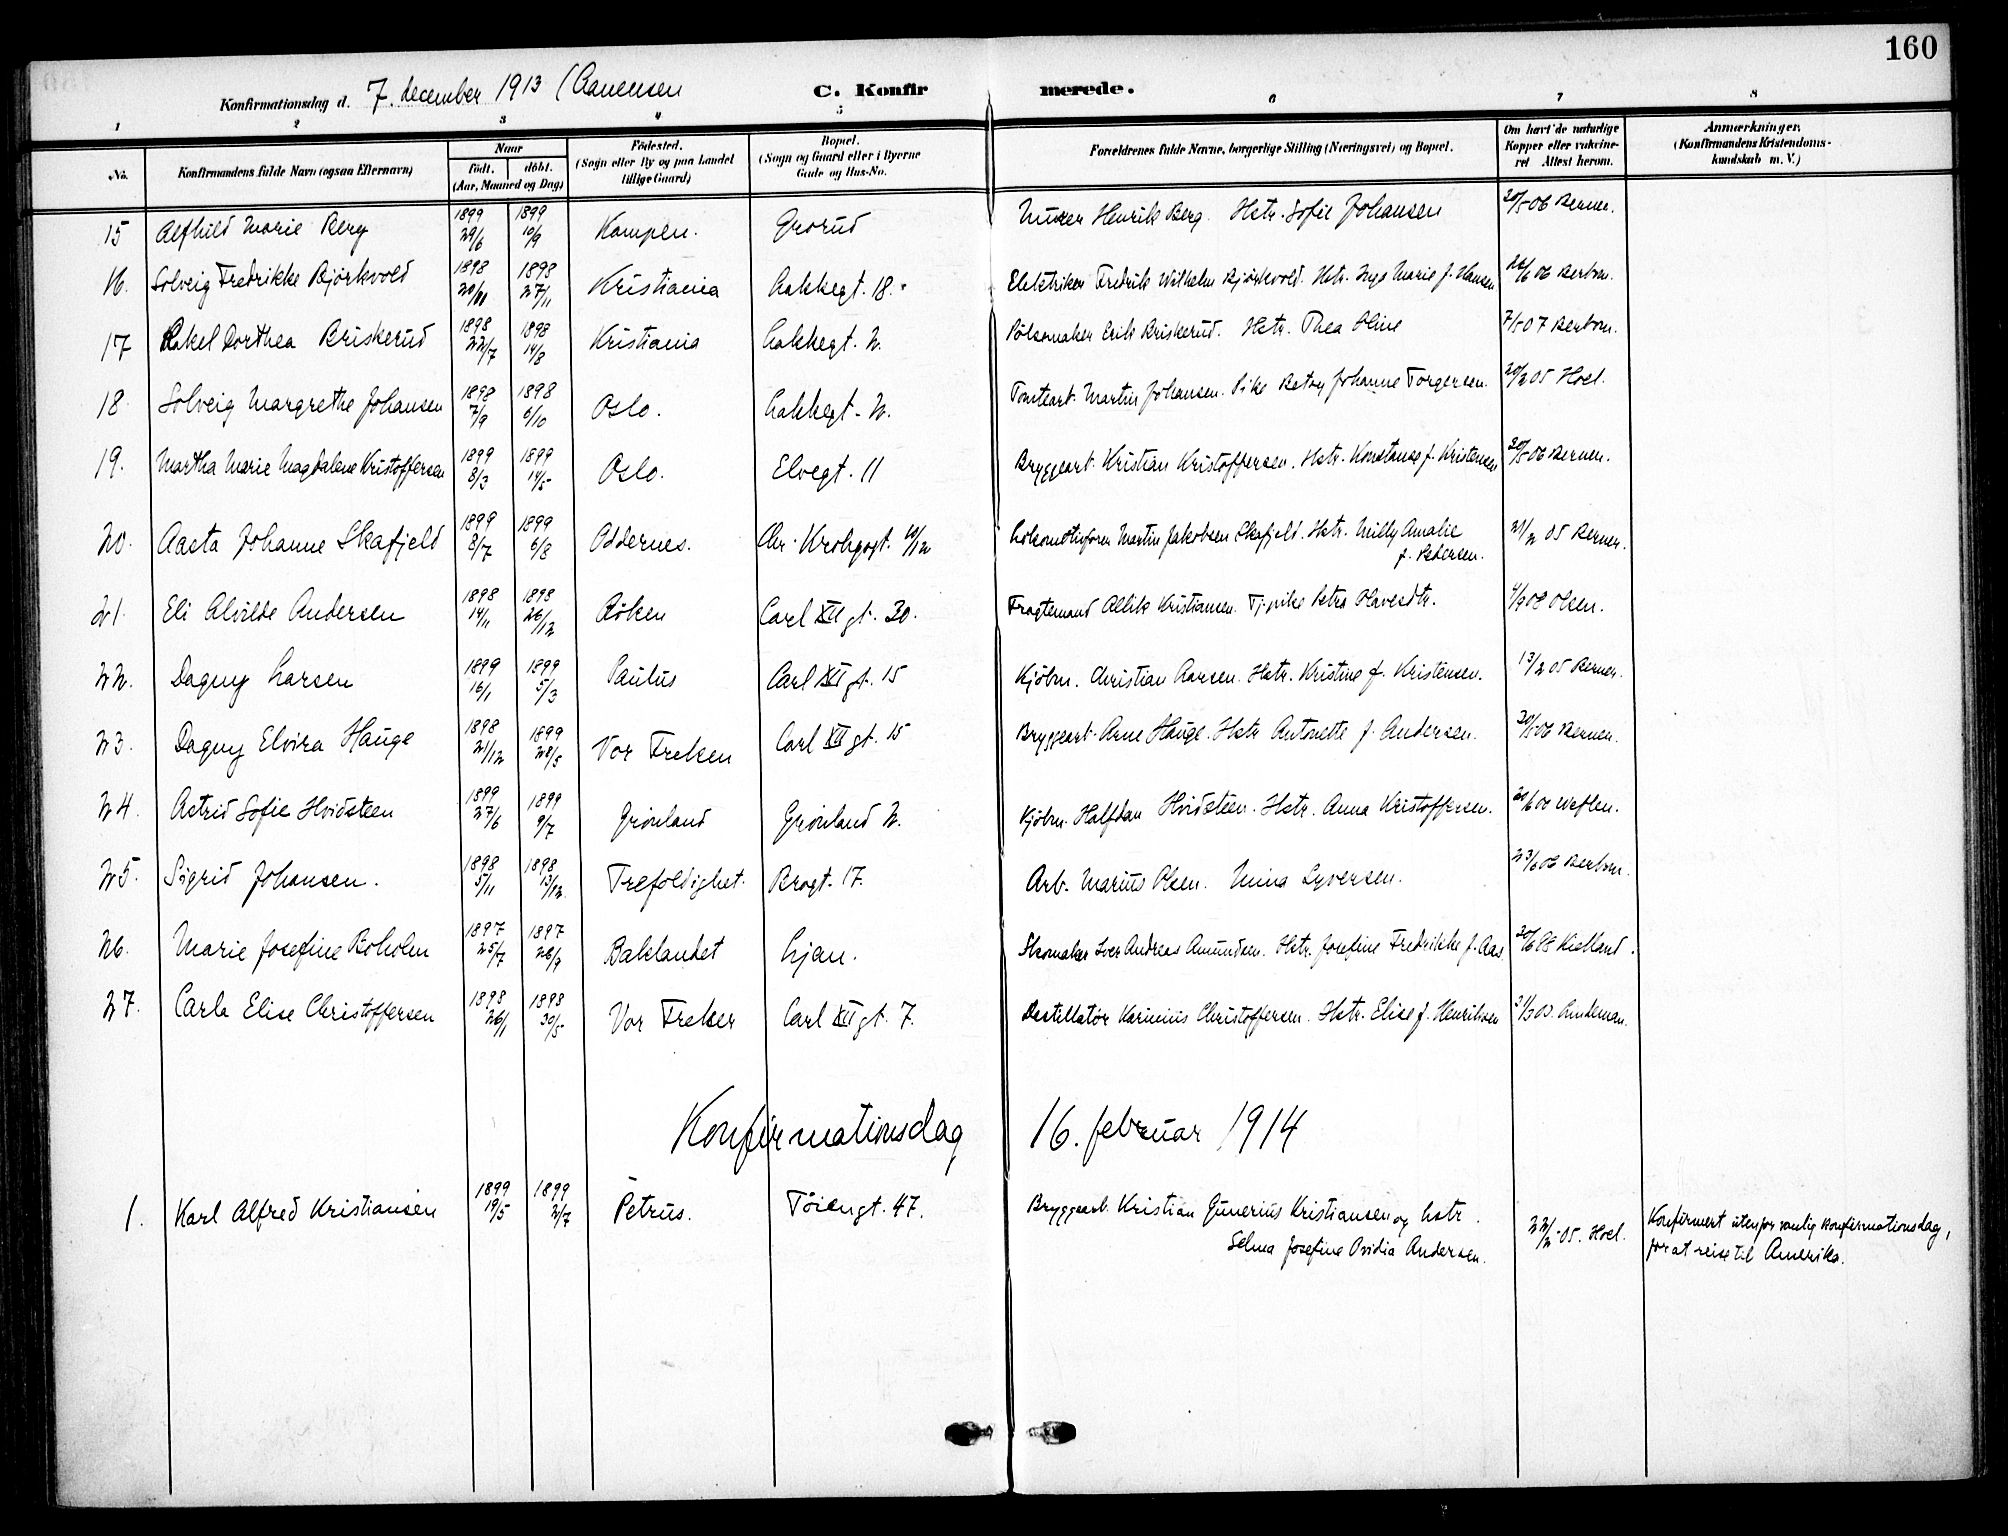 160
Konfirmationsdag d. 7. december 1913 (Aanensen C. Konfirmerede.
1 2 3 4 5 6 7 8
No. Konfirmandens fulde Navn (ogsaa Efternavn) Naar født. døbt. (Aar, Maaned og Dag) Fødested. (Sogn eller By og paa Landet tillige Gaard) Bopæl. (Sogn og Gaard eller i Byerne Gade og Hus-No. Forældrenes fulde Navne, borgerlige Stilling (Næringsvei) og Bopæl. Om havt de naturlige Kopper eller vakcineret Attest herom. Anmærkninger. (Konfirmandens Kristendomskundskab m. V.)
15 Alfhild Marie Berg 1899 29/6 1899 10/9 Kampen. Grorud Murer Henrik Berg. Hstr. Sofie Johansen 20/5 06 Berner.
16. Solveig Fredrikke Bjørkvold 1898 20/10 1898 27/11 Kristiania Lakkegt. 18. Elektriker Fredrik Wilhelm Bjørkvold. Hstr. Inga Marie f. Hansen 26/6 06 Berbom.
17 Rakel Dorthea Briskerud 1898 22/7 1898 14/8 Kristiania Lakkegt. 2. Pølsemaker Erik Briskerud. Hstr. Thea Oline 7/5 07 Berbom.
18. Solveig Margrethe Johansen 1898 7/9 1898 6/10 Oslo. Lakkegt. 2. Tomteart. Martin Johansen. Pike Betsy Johanne Torgersen. 20/2 05 Hoel.
19. Martha Marie Magdalene Kristoffersen 1899 8/3 1899 14/5 Oslo. Elvegt. 11 Bryggeart. Kristian Kristoffersen. Hstr. Konstanse f. Kristensen 30/5 06 Berner.
20. Aasta Johanne Skafjeld 1899 8/7 1899 6/8 Oddernes. Chr. Krohgsgt. Lokomotivfører Martin Jakobsen Skafjeld. Hstr. Milly Amalie f. Pedersen. 21/2 05 Berner.
21. Eli Alvilde Andersen 1898 14/11 1898 26/12 Røken Carl XII gt. 30. Fragtemand Kristiansen. Tj.pike Petra Olavesdtr. 4/9 08 Olsen.
22. Dagny Larsen 1899 16/1 1899 5/3 Paulus Carl XII gt. 15 Kjøbm. Christian Larsen. Hstr. Kristine f. Kristensen. 13/2 05 Berner.
23. Dagny Elvira Hauge 1898 21/12 1899 28/5 Vor Frelsen Carl XII gt. 15 Bryggeart. Arne Hauge. Hstr Antonette f. Andersen. 20/5 06 Berner.
24. Astrid Sofie Hvidsteen 1899 27/6 1899 9/7 Grønland Grønland 2. Kjøbm. Halfdan Hvidsteen. Hstr. Anna Kristoffersen.
25. Sigrid Johansen. 1898 5/11 1898 13/12 Trefoldighet. Brogt. 17. Arb. Marius Olsen. Mina Syversen. 23/6 06 Berbom.
26. Marie Josefine Boholm 1897 25/7 1897 26/9 Baklandet Ljan. Skomaker Iver Andreas Amundsen. Hstr. Josefine Fredrikke f. Aas Kielland.
27. Carla Elise Christoffersen 1898 26/1 1898 30/5 Vor Frelser Carl XII gt. 7. Destillatør Karinius Christoffersen. Hstr. Elise f. Henriksen Lindeman.
Konfirmationsdag 16. februar 1914
1. Karl Alfred Kristiansen 1899 19/5 1899 2/7 Petrus. Tøiengt. 47. Bryggearb. Kristian Gunerius Kristiansen og hstr. Selma Josefine Ovidia Andersen. 22/2 05. Hoel. Konfirmert utenfor vanlig konfirmationsdag, for at reise til Amerika.